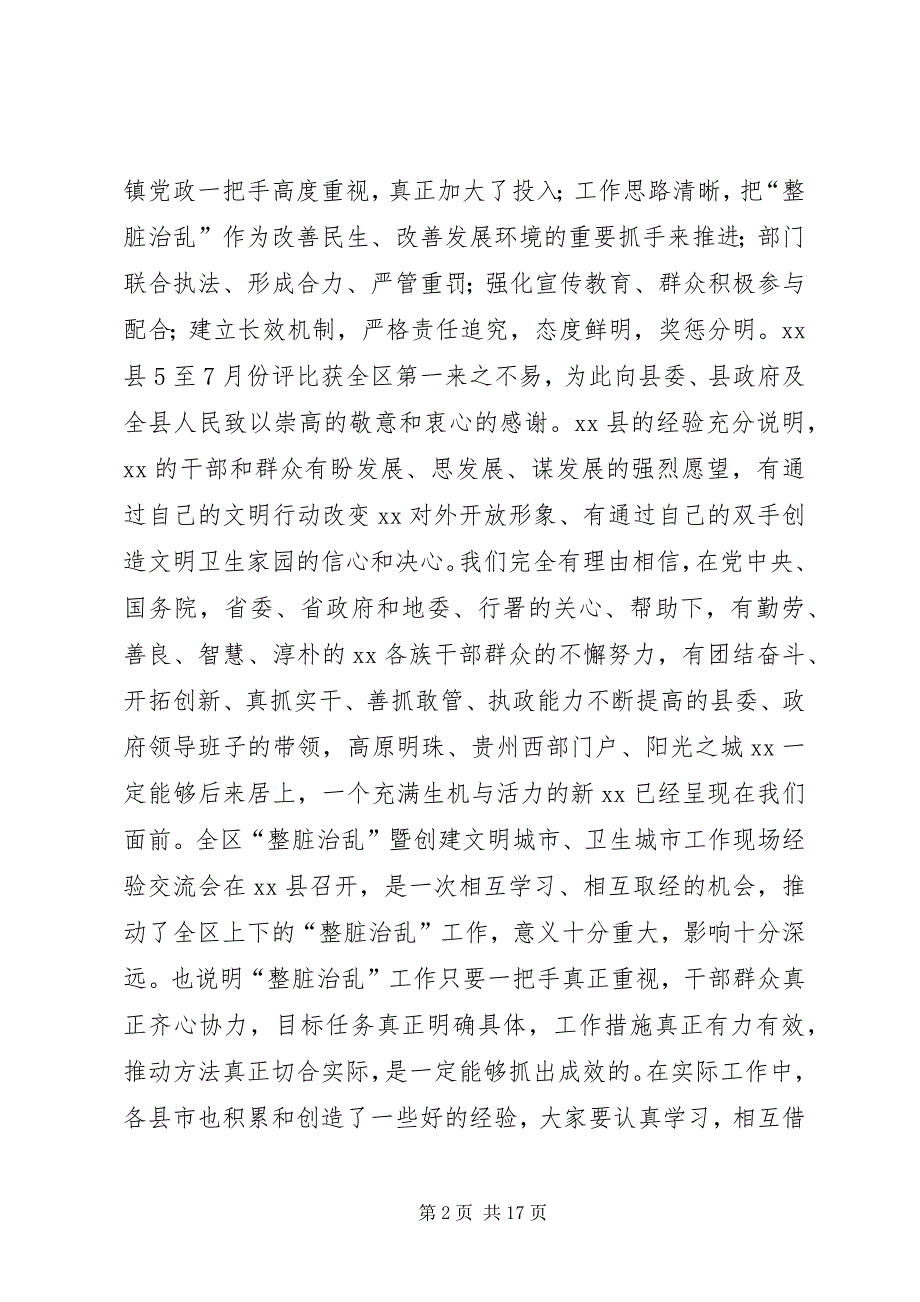 镇党政一把手高度重视，真正加大了投入；工作思路清晰，把“整
脏治乱”作为改善民生、改善发展环境的重要抓手来推进；部门
联合执法、形成合力、严管重罚；强化宣传教育、群众积极参与
配合；建立长效机制，严格责任追究，态度鲜明，奖惩分明。xx
县 5 至 7 月份评比获全区第一来之不易，为此向县委、县政府及
全县人民致以崇高的敬意和衷心的感谢。xx 县的经验充分说明，
xx 的干部和群众有盼发展、思发展、谋发展的强烈愿望，有通
过自己的文明行动改变 xx 对外开放形象、有通过自己的双手创
造文明卫生家园的信心和决心。我们完全有理由相信，在党中央、
国务院，省委、省政府和地委、行署的关心、帮助下，有勤劳、
善良、智慧、淳朴的 xx 各族干部群众的不懈努力，有团结奋斗、
开拓创新、真抓实干、善抓敢管、执政能力不断提高的县委、政
府领导班子的带领，高原明珠、贵州西部门户、阳光之城 xx 一
定能够后来居上，一个充满生机与活力的新 xx 已经呈现在我们
面前。全区“整脏治乱”暨创建文明城市、卫生城市工作现场经
验交流会在 xx 县召开，是一次相互学习、相互取经的机会，推
动了全区上下的“整脏治乱”工作，意义十分重大，影响十分深
远。也说明“整脏治乱”工作只要一把手真正重视，干部群众真
正齐心协力，目标任务真正明确具体，工作措施真正有力有效，
推动方法真正切合实际，是一定能够抓出成效的。在实际工作中，
各县市也积累和创造了一些好的经验，大家要认真学习，相互借
第 2 页 共 17 页